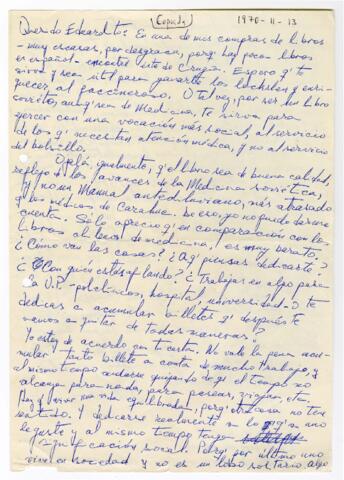 (Copuda)
1970-11-13
Querido Eduardito: En una de mis compras de libros
- muy escasas, por desgracia, porq' hay pocos libros
en español - encontré éste de Cirugía. Espero q' te
sirva y sea útil para ganarte los luchelen y enri-
quecer, al facineroso. O tal vez, por ser un libro
soviético, aunq' sea de Medicina, te sirva para
ejercer con una vocación más social, al servicio
de los q' necesiten atención médica, y no al servicio
del bolsillo.
Ojalá, igualmente, q' el libro sea de buena calidad,
reflejo de los avances de la Medicina soviética,
y no un Manual antediluviano, más atrasado
q' los médicos de Carahue. Pero eso, yo no puedo darme
cuenta. Sólo aprecio q' en comparación con los
libros chilenos de medicina, es muy barato.
¿Cómo van las cosas? ¿A q' piensas dedicarte?
¿Con quien estás aflando? ¿Trabajas en algo para
la U.P. - policlínicos, hospital, universidad? ¿Te
dedicas a acumular billetes q' después te
vamos a quitar de todas maneras?
Yo estoy de acuerdo con tu carta. No vale la pena acu-
mular tanto billete a costa de mucho trabajo, y
al mismo tiempo andarse quejando de q' el tiempo no
alcanza para nada, para pasear, viajar, etc.
Hay q' vivir una vida equilibrada, porq' otra cosa no tiene
sentido. Y dedicarse realmente a lo q' a uno
le guste y al mismo tiempo tenga
significación social. Porq' por último uno
vive en sociedad y no es un lobo solitario. Algo